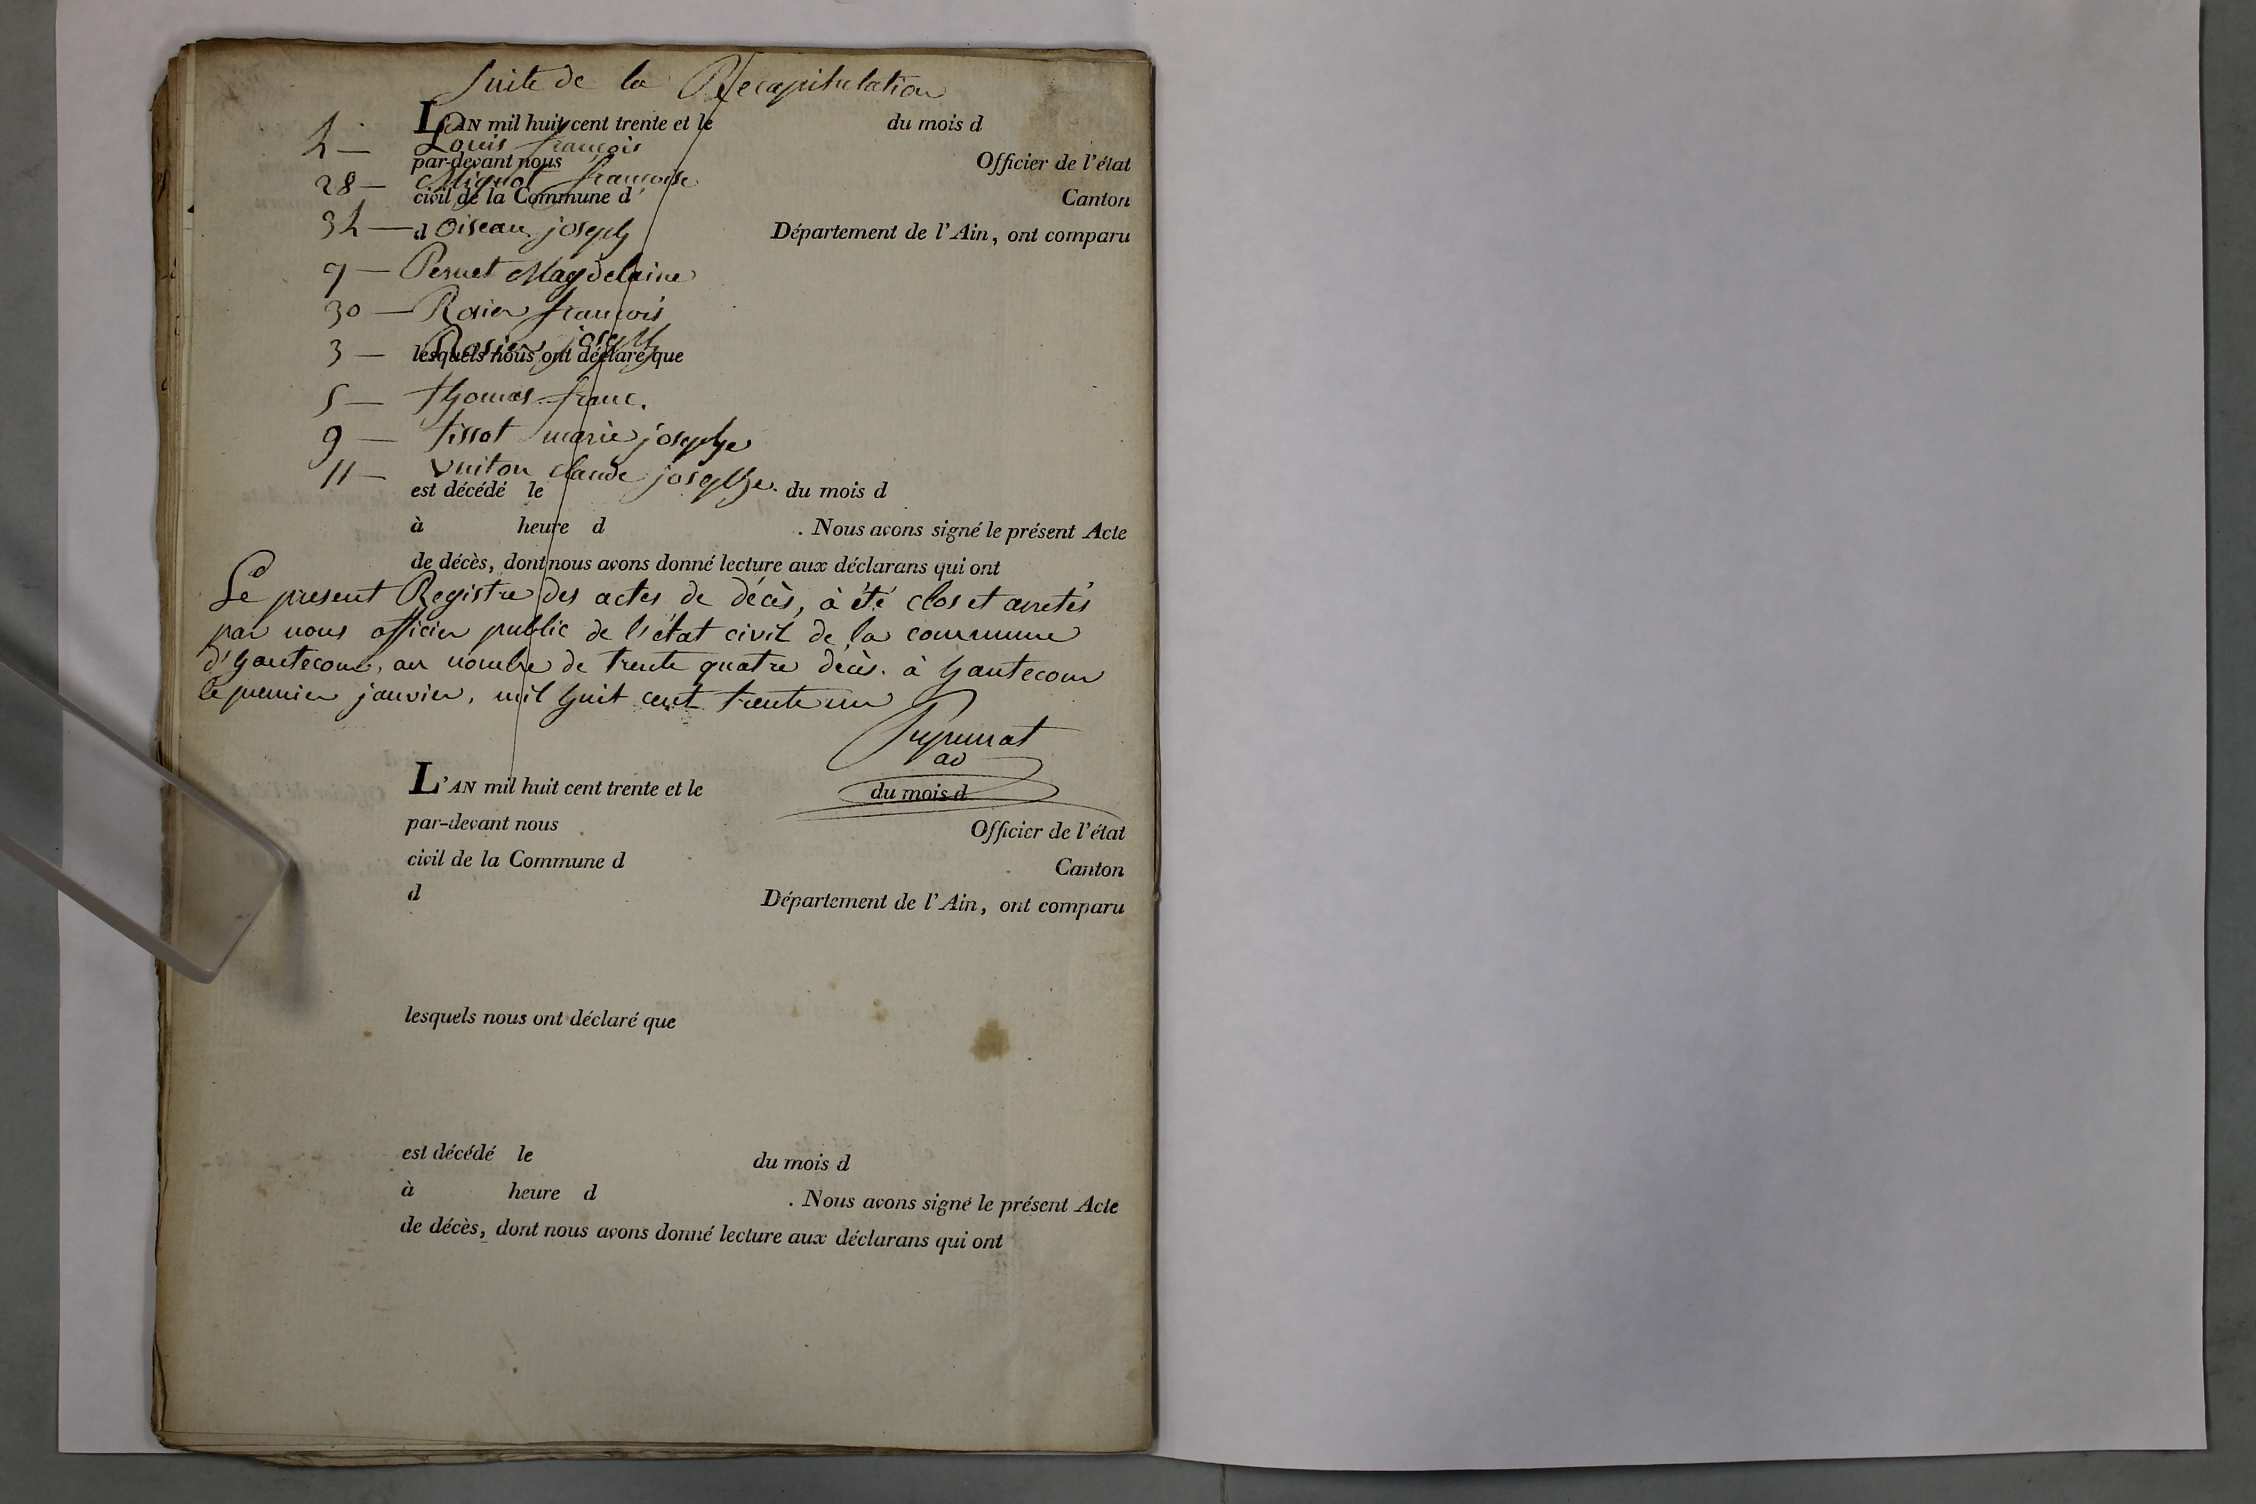 Suite de la Recapitulation
L'AN mil huit cent trente et le du mois d
4 — Louis françois
par-devant nous Officier de l'état
28 — Mignot françoise
civil de la Commune d Canton
34 — Oiseau joseph
d Département de l'Ain, ont comparu
9 — Pernet Magdelaine
30 — Rosier françois
3 — Rosier joseph
lesquels nous ont déclaré que
5 — thomas franc.
9 — tissot marie josephe
11 — vuiton claude josephe.
est décédé le du mois d
à heure d . Nous avons signé le présent Acte
de décès, dont nous avons donné lecture aux déclarans qui ont
Le present Registre des actes de décès, à été clos et arretés
par nous officier public de l'état civil de la commune
d'hautecour, au nombre de trente quatre décès. à hautecour
le premier janvier, mil huit cent trente un
ad
L'AN mil huit cent trente et le du mois d
par-devant nous Officier de l'état
civil de la Commune d Canton
d Département de l'Ain, ont comparu
lesquels nous ont déclaré que
est décédé le du mois d
à heure d . Nous avons signé le présent Acte
de décès, dont nous avons donné lecture aux déclarans qui ont